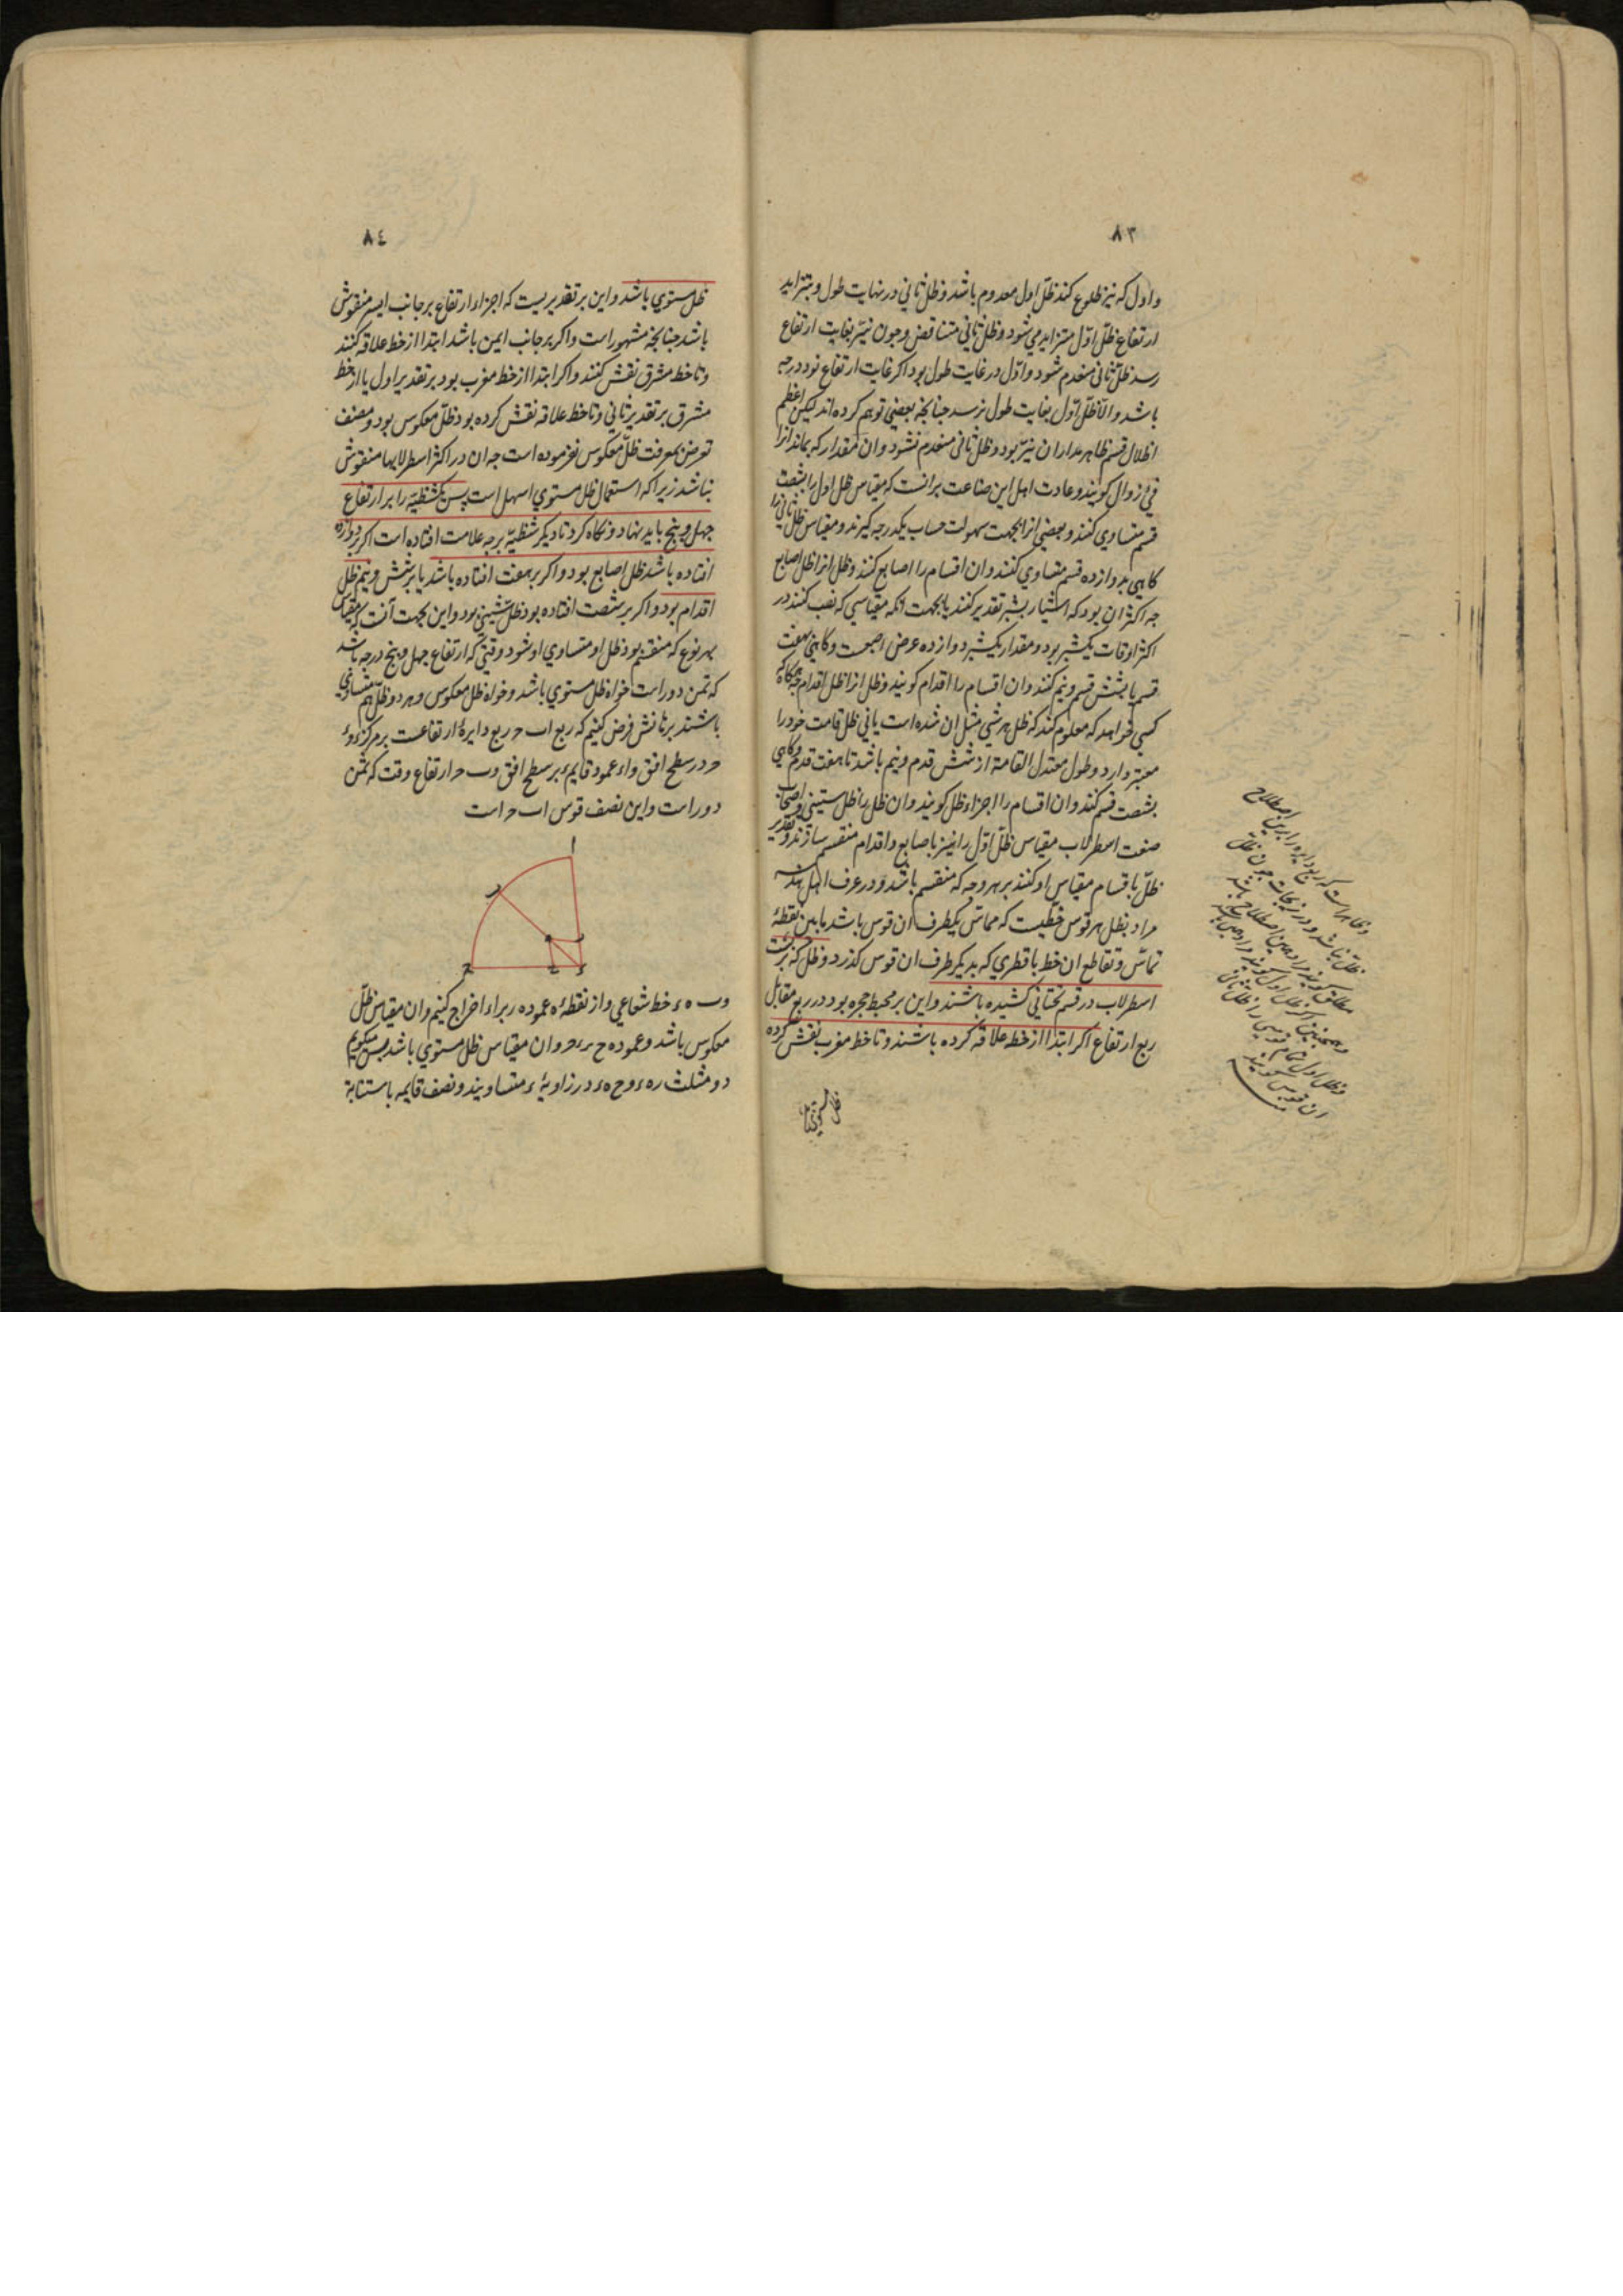 ٨٣
واول که نیر طلوع کند ظلّ اول معدوم باشد و ظل ثانی در نهایت طول و بتزاید
ارتفاع ظلّ اوّل متزاید می شود و ظل ثانی متناقض و چون نیّر بغایت ارتفاع
رسد ظلّ ثانی منعدم شود و اوّل در غایت طول بود اکر غایت ارتفاع نود درجه
باشد و الّا ظلّ اوّل بغایت طول نرسد جنانجه بعضی توهم کرده اند لیکن اعظم
اظلال قسم ظاهر مدار ان نیّر بود و ظل ثانی منعدم نشود و ان مقدار که بماند انرا
فیٔ زوال کویند و عادت اهل این صناعت برانست که مقیاس ظل اول را بشصت
قسم متساوی کنند و بعضی انرا بجهت سهولت حساب یکدرجه کیرند و مقیاس ظل ثانی را
کاهی بدوازده قسم متساوی کنند و ان اقسام را اصابع کنند و ظل انرا ظل اصابع
جه اکثر ان بود که اشیا را بشبر تقدیر کنند یا بجهت انکه مقیاسی که نصب کنند در
اکثر اوقات یکشبر بود و مقدار یکشبر دوازده عرض اصبعست و کاهی بهفت
قسم یا بشش قسم و نیم کنند و ان اقسام را اقدام کویند و ظل انرا ظل اقدام جه هرکاه
کسی خواهد که معلوم کند که ظل هر شی مثل ان شده است یا نی ظل قامت خود را
معتبر دارد و طول معتدل القامة از شش قدم و نیم باشد تا هفت قدم و کاهی
بشصت قسم کنند و ان اقسام را اجزاء ظل کویند و ان ظل را ظل ستینی و اصحاب
صنعت اسطرلاب مقیاس ظلّ اوّل را نیز باصابع و اقدام منقسم سازند و تقدیر
ظلّ باقسام مقیاس او کنند بر هر وجه که منقسم باشد و در عرف اهل هندسه
مراد بظل هر قوس خطیست که مماسّ یکطرف ان قوس باشد مابین نقطهٔ
تماسّ و تقاطع ان خط با قطری که بدیکر طرف ان قوس کذرد و ظل که بر پشت
اسطرلاب در قسم تحتانی کشیده باشند و این بر محیط حجره بود در ربع مقابل
ربع ارتفاع اکر ابتدا از خط علاقه کرده باشند و تا خط مغرب نقش کرده
ظل مستوی
٨٤
ظل مستوی باشد و این بر تقدیریست که اجزاء ارتفاع بر جانب ایسر منقوش
باشد جنانجه مشهور است و اکر بر جانب ایمن باشد ابتدا از خط علاقه کنند
و تا خط مشرق نقش کنند و اکر ابتدا از خط مغرب بود بر تقدیر اول یا از خط
مشرق بر تقدیر ثانی و تا خط علاقه نقش کرده بود ظلّ معکوس بود و مصنف
تعرض بمعرفت ظلّ معکوس نفرموده است جه ان در اکثر اسطرلابها منقوش
نباشد زیراکه استعمال ظل مستوی اسهل است پس یک شظیّه را بر ارتفاع
جهل و پنج باید نهاد و نکاه کرد تا دیکر شظیّه بر جه علامت افتاده است اکر بر دوازده
افتاده باشد ظل اصابع بود و اکر بر هفت افتاده باشد یا بر شش و نیم ظل
اقدام بود و اکر بر شصت افتاده بود ظل ستینی بود و این بجهت آنست که مقیاس
بهر نوع که منقسم بود ظل او متساوی او شود وقتی که ارتفاع جهل و پنج درجه باشد
که ثمن دور است خواه ظل مستوی باشد و خواه ظل معکوس و هر دو ظل هم متساوی
باشند برهانش فرض کنیم که ربع اب ح ربع دایرهٔ ارتفاعست بر مرکز ء و ء
ح در سطح افق و اء عمود قایم بر سطح افق و ب ح ارتفاع وقت که ثمن
دور است و این نصف قوس اب ح است
ا
ب
ه
ر
ح
ء
و ب ه ء خط شعاعی و از نقطهٔ ه عمود ه ر بر اء اخراج کنیم و ان مقیاس ظلّ
معکوس باشد و عمود ه ح بر ء ح و ان مقیاس ظل مستوی باشد پس میکوییم
دو مثلث ر ه ء و ح ه ء در زاویهٔ ء متساویند و نصف قایمه باستنابة